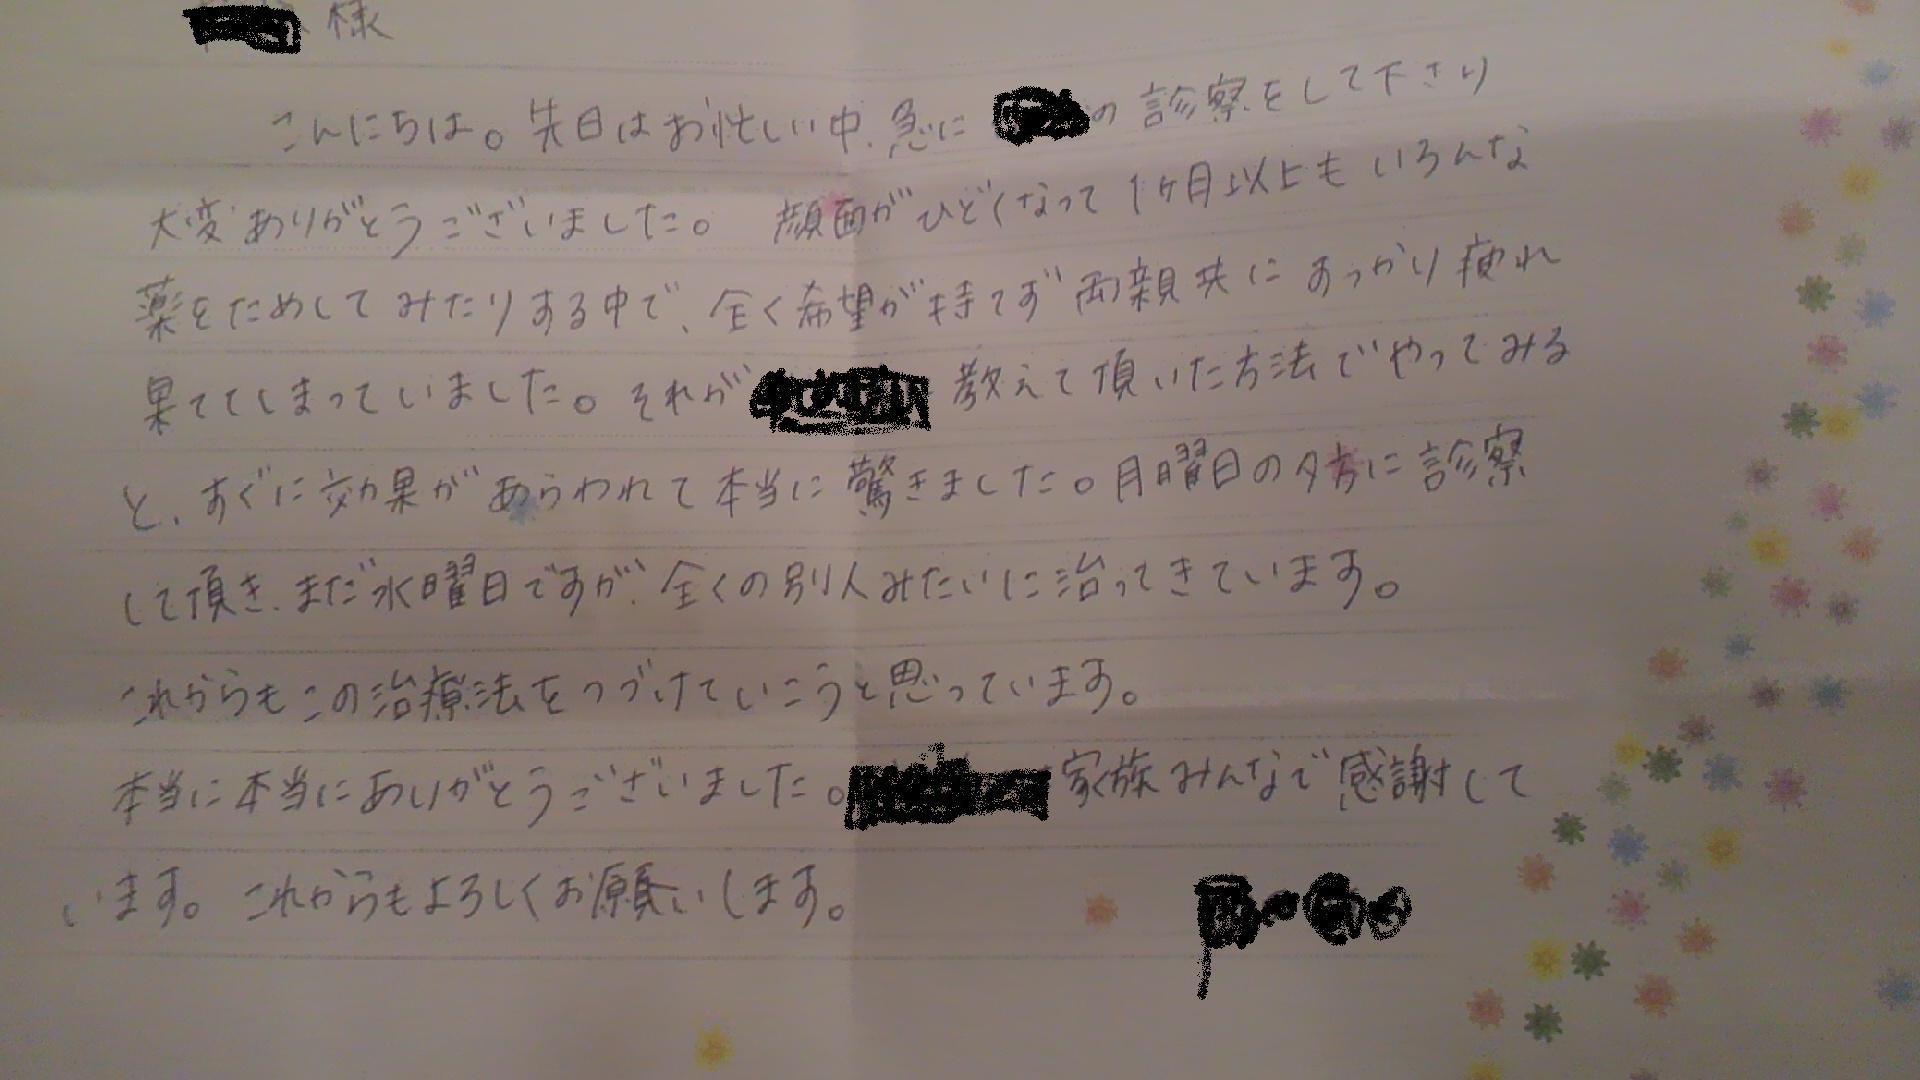 様
こんにちは。先日はお忙しい中、急に の診察をして下さり
大変ありがとうございました。顔面がひどくなって1ヶ月以上もいろんな
薬をためしてみたりする中で、全く希望が持てず両親共にすっかり疲れ
果ててしまっていました。それが 教えて頂いた方法でやってみる
と、すぐに効果があらわれて本当に驚きました。月曜日の夕方に診察
して頂き、まだ水曜日ですが、全くの別人みたいに治ってきています。
これからもこの治療法をつづけていこうと思っています。
本当に本当にありがとうございました。 家族みんなで感謝して
います。これからもよろしくお願いします。